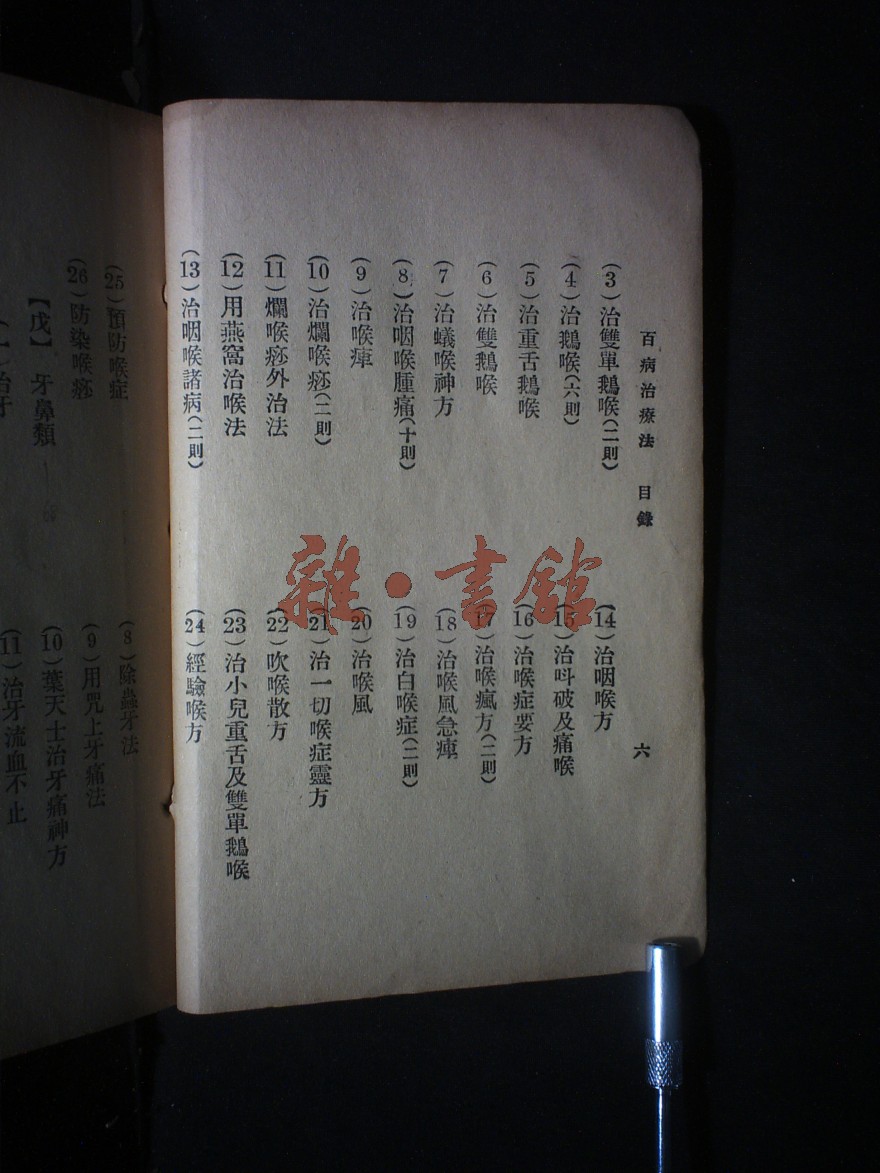 百病治療法 目錄 六
(3)治雙單鵝喉(二則)
(4)治鵝喉(六則)
(5)治重舌鵝喉
(6)治雙鵝喉
(7)治蟻喉神方
(8)治咽喉腫痛(十則)
(9)治喉痺
(10)治爛喉痧(二則)
(11)爛喉痧外治法
(12)用燕窩治喉法
(13)治咽喉諸病(二則)
(14)治咽喉方
(15)治呌破及痛喉
(16)治喉症要方
(17)治喉瘋方(二則)
(18)治喉風急痺
(19)治白喉症(二則)
(20)治喉風
(21)治一切喉症靈方
(22)吹喉散方
(23)治小兒重舌及雙單鵝喉
(24)經驗喉方
(25)預防喉症
(26)防染喉痧
【戊】 牙鼻類
治牙
(8)除蟲牙法
(9)用咒上牙痛法
(10)葉天士治牙痛神方
(11)治牙流血不止
雜·書館